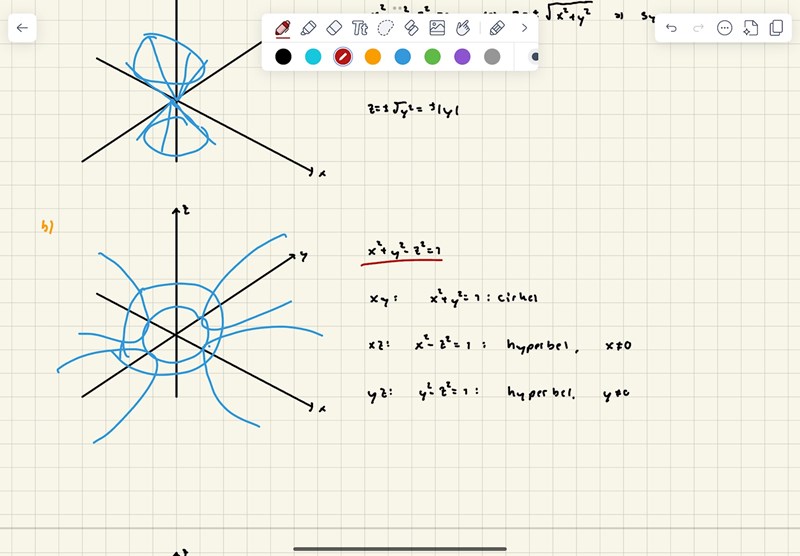 √x²+y²
z=±√y²=±|y|
x
b)
z
y
x²+y²-z²=1
xy: x²+y²=1: cirkel
xz: x²-z²=1: hyperbel, x≠0
yz: y²-z²=1: hyperbel, y≠0
x
z